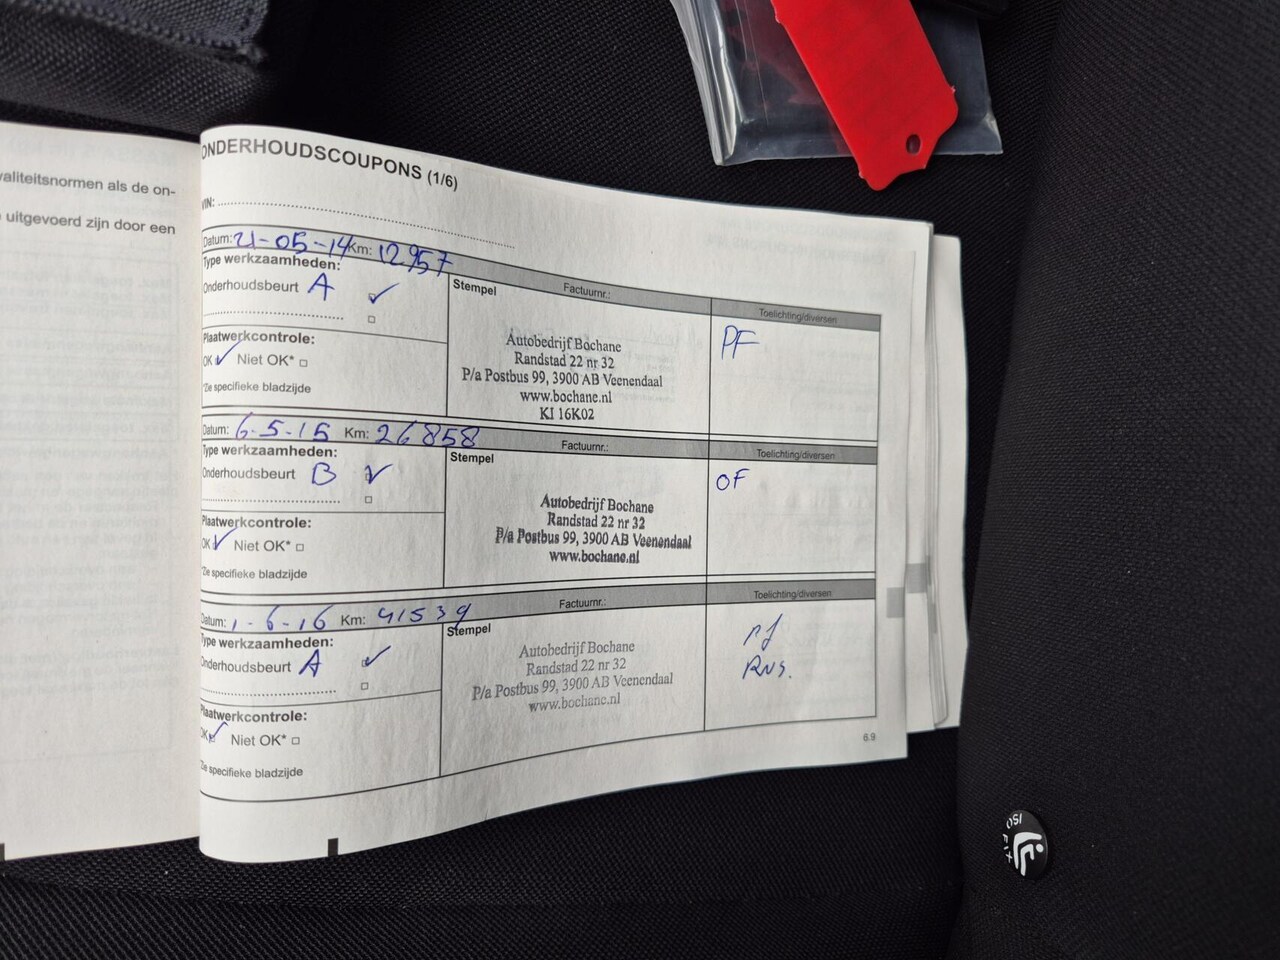 valiteitsnormen als de on-
uitgevoerd zijn door een
ONDERHOUDSCOUPONS (1/6)
VIN:
Datum: 21-05-14 Km: 12957
Factuurnr.:
Toelichting/diversen
Type werkzaamheden:
Onderhoudsbeurt A
Plaatwerkcontrole:
OK Niet OK*
*Zie specifieke bladzijde
Stempel
Autobedrijf Bochane
Randstad 22 nr 32
P/a Postbus 99, 3900 AB Veenendaal
www.bochane.nl
KI 16K02
PF
Datum: 6-5-15 Km: 26858
Factuurnr.:
Toelichting/diversen
Type werkzaamheden:
Onderhoudsbeurt B
Plaatwerkcontrole:
OK Niet OK*
*Zie specifieke bladzijde
Stempel
Autobedrijf Bochane
Randstad 22 nr 32
P/a Postbus 99, 3900 AB Veenendaal
www.bochane.nl
OF
Datum: 1-6-16 Km: 41539
Factuurnr.:
Toelichting/diversen
Type werkzaamheden:
Onderhoudsbeurt A
Plaatwerkcontrole:
OK Niet OK*
*Zie specifieke bladzijde
Stempel
Autobedrijf Bochane
Randstad 22 nr 32
P/a Postbus 99, 3900 AB Veenendaal
www.bochane.nl
6.9
ISO
FIX